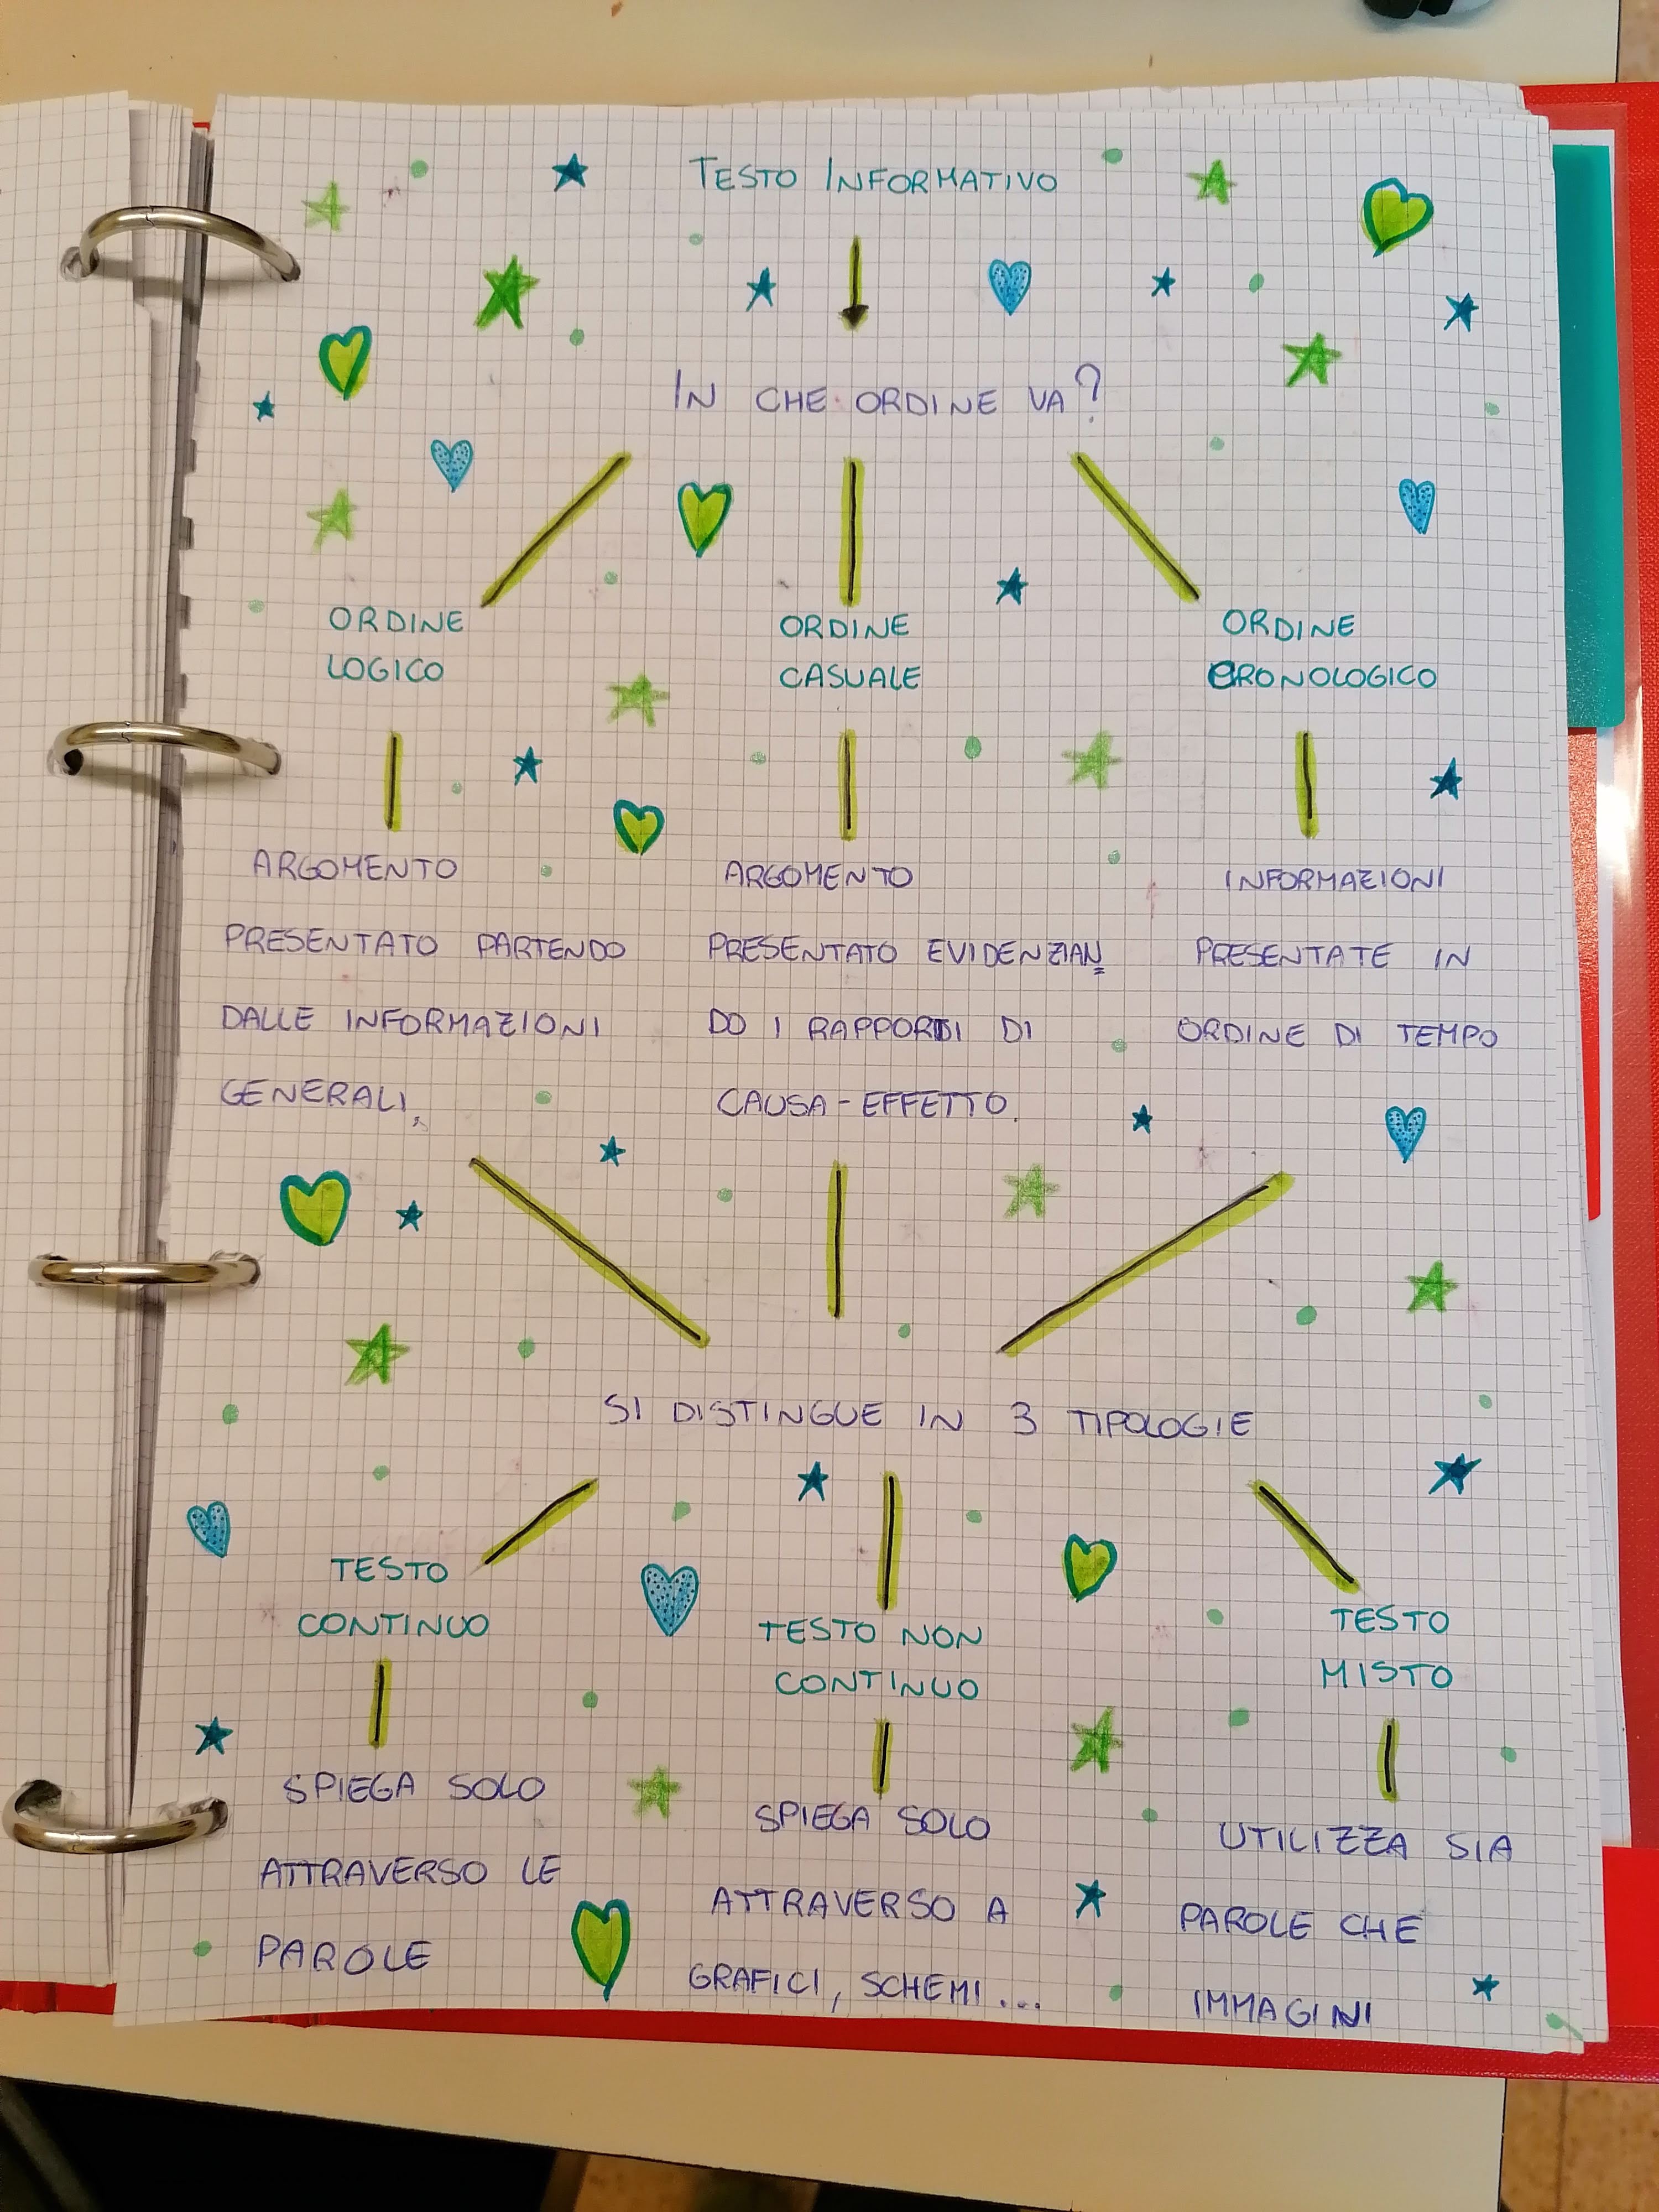 TESTO INFORMATIVO
IN CHE ORDINE VA?
ORDINE
LOGICO
ARGOMENTO
PRESENTATO PARTENDO
DALLE INFORMAZIONI
GENERALI,
ORDINE
CASUALE
ARGOMENTO
PRESENTATO EVIDENZIAN
DO I RAPPORTI DI
CAUSA-EFFETTO.
ORDINE
CRONOLOGICO
INFORMAZIONI
PRESENTATE IN
ORDINE DI TEMPO
SI DISTINGUE IN 3 TIPOLOGIE
TESTO
CONTINUO
SPIEGA SOLO
ATTRAVERSO LE
PAROLE
TESTO NON
CONTINUO
SPIEGA SOLO
ATTRAVERSO A
GRAFICI, SCHEMI...
TESTO
MISTO
UTILIZZA SIA
PAROLE CHE
IMMAGINI